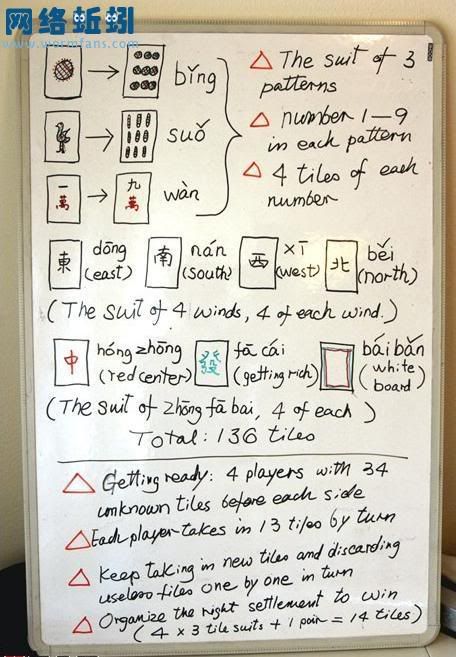 网络蚯蚓
www.wormfans.com
bǐng
suǒ
一萬 九萬 wàn
The suit of 3
patterns
number 1—9
in each pattern
4 tiles of each
number
東 dōng
(east)
南 nán
(south)
西 xī
(west)
北 běi
(north)
(The suit of 4 winds, 4 of each wind.)
中 hóng zhōng
(red center)
發 fā cái
(getting rich)
bái bǎn
(white
board)
(The suit of zhōng fā bai, 4 of each)
Total: 136 tiles
Getting ready: 4 players with 34
unknown tiles before each side
Each player takes in 13 tiles by turn
Keep taking in new tiles and discarding
useless tiles one by one in turn
Organize the right settlement to win
(4 × 3 tile suits + 1 pair = 14 tiles)